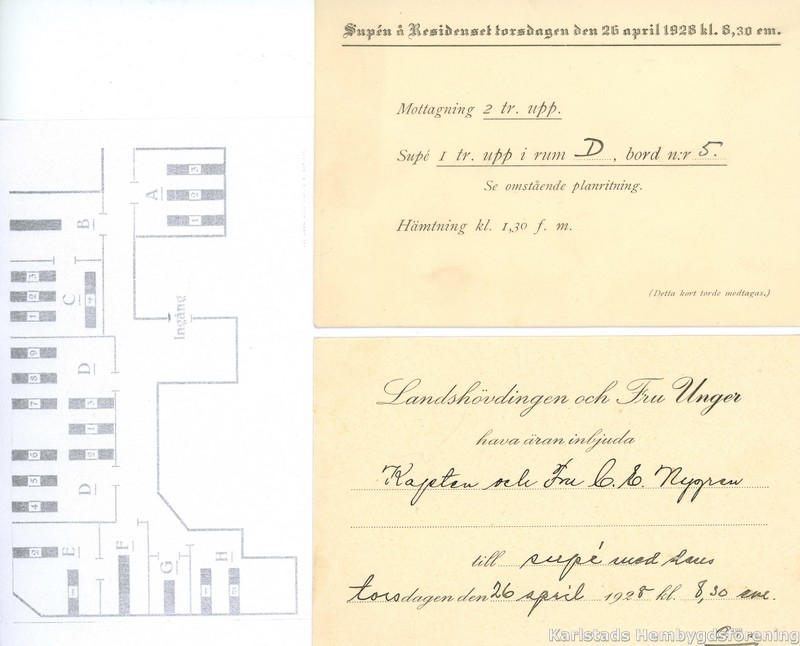 Supén å Residenset torsdagen den 26 april 1928 kl. 8,30 em.
Mottagning 2 tr. upp.
Supé 1 tr. upp i rum D, bord n:r 5.
Se omstående planritning.
Hämtning kl. 1,30 f. m.
(Detta kort torde medtagas.)
Landshövdingen och Fru Unger
hava äran inbjuda
Kapten och Fru C. E. Nygren
till supé med dans
torsdagen den 26 april 1928 kl. 8,30 em.
A
3
2
1
B
C
3
2
1
4
Ingång
D
9
8
7
3
1
2
D
6
5
4
E
2
1
F
G
H
1
2
Karlstads Hembygdsförening